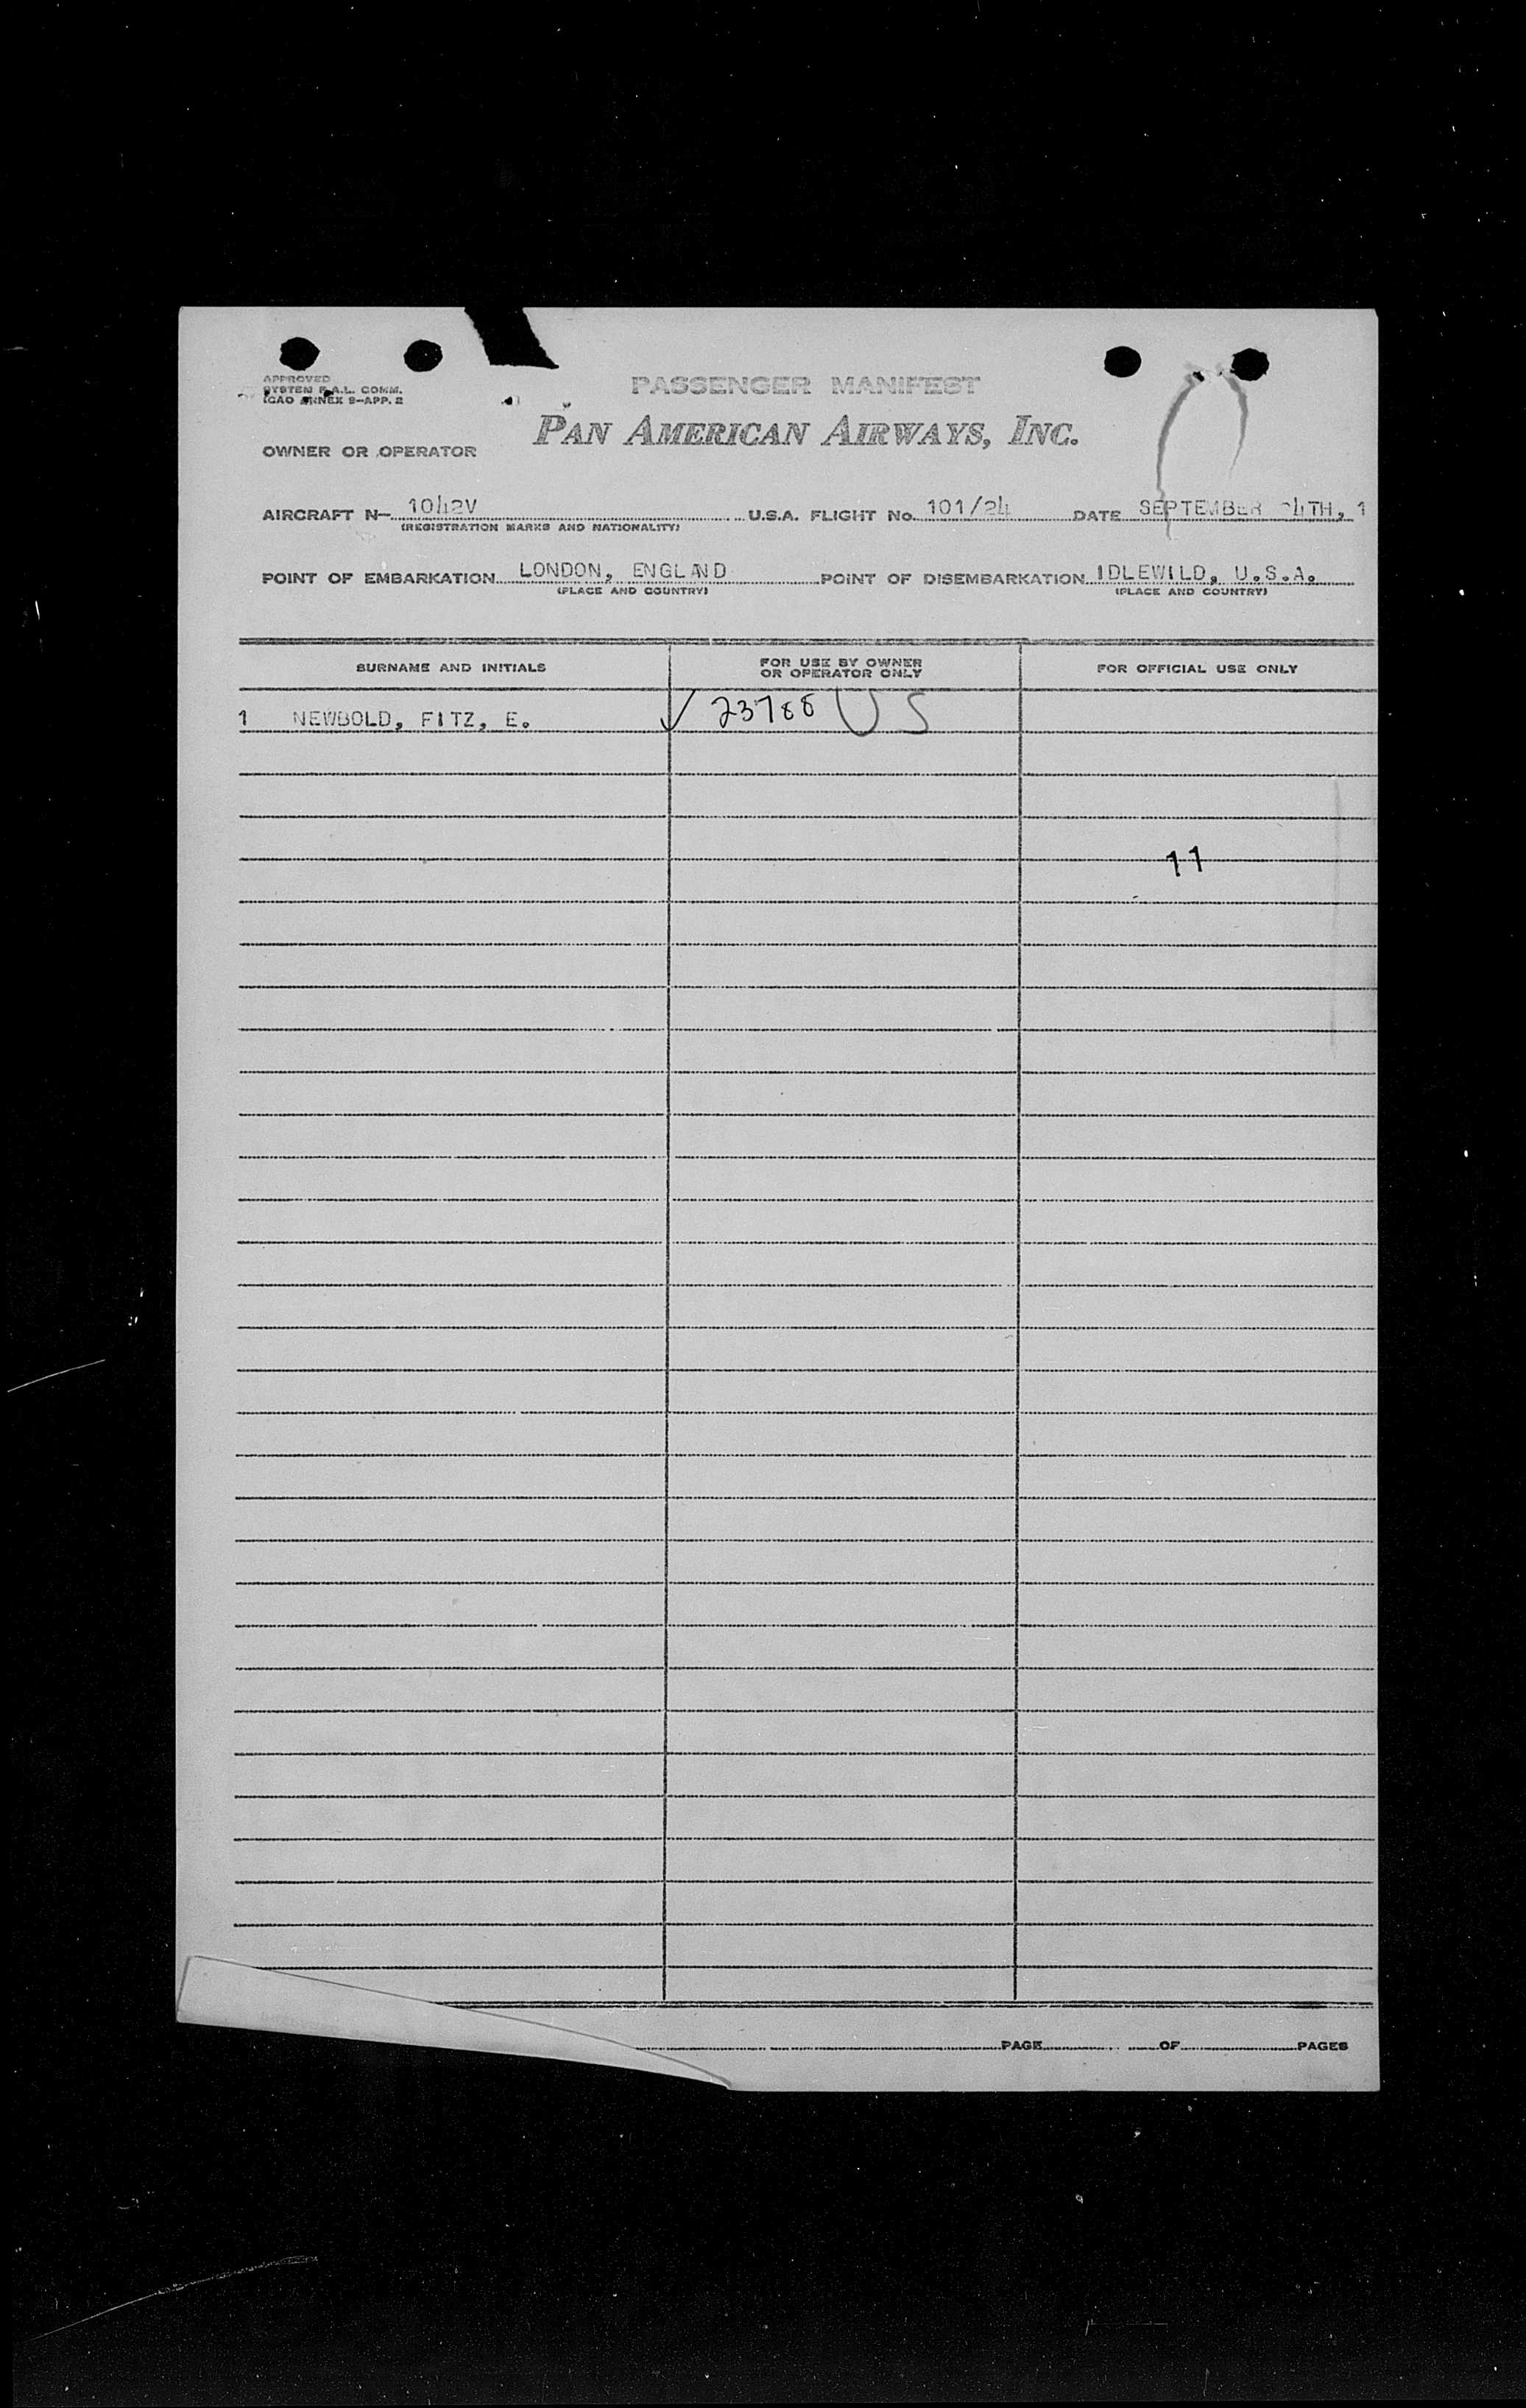 APPROVED
SYSTEM F.A.L. COMM.
ICAO ANNEX 9-APP. 2
PASSENGER MANIFEST
PAN AMERICAN AIRWAYS, INC.
OWNER OR OPERATOR
AIRCRAFT N- 1042V U.S.A. FLIGHT No. 101/24 DATE SEPTEMBER 24TH, 1
(REGISTRATION MARKS AND NATIONALITY)
POINT OF EMBARKATION LONDON, ENGLAND POINT OF DISEMBARKATION IDLEWILD, U.S.A.
(PLACE AND COUNTRY) (PLACE AND COUNTRY)
SURNAME AND INITIALS FOR USE BY OWNER OR OPERATOR ONLY FOR OFFICIAL USE ONLY
1 NEWBOLD, FITZ, E. ✓ 23788 US
11
PAGE OF PAGES